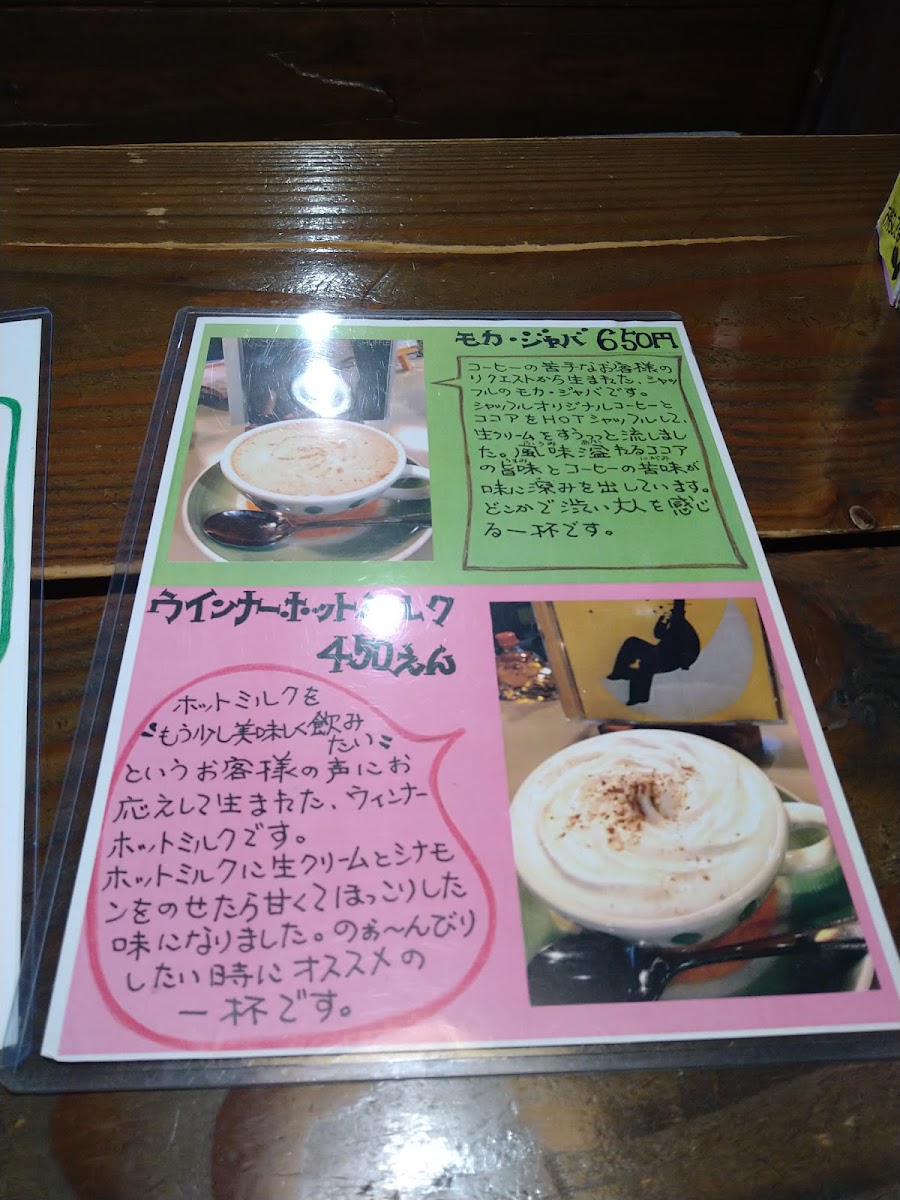 モカ・ジャバ 650円
コーヒーの苦手なお客様の
リクエストから生まれた、シャッ
フルのモカ・ジャバです。
シャッフルオリジナルコーヒーと
ココアをHOTシャッフルして、
生クリームをすうっっと流しまし
た。風味溢れるココア
の旨味とコーヒーの苦味が
味に深みを出しています。
どこかで渋い大人を感じ
る一杯です。
ウインナーホットミルク
450えん
ホットミルクを
〝もう少し美味しく飲み
たい〟
というお客様の声にお
応えして生まれた、ウィンナー
ホットミルクです。
ホットミルクに生クリームとシナモ
ンをのせたら甘くてほっこりした
味になりました。のぉ〜んびり
したい時にオススメの
一杯です。